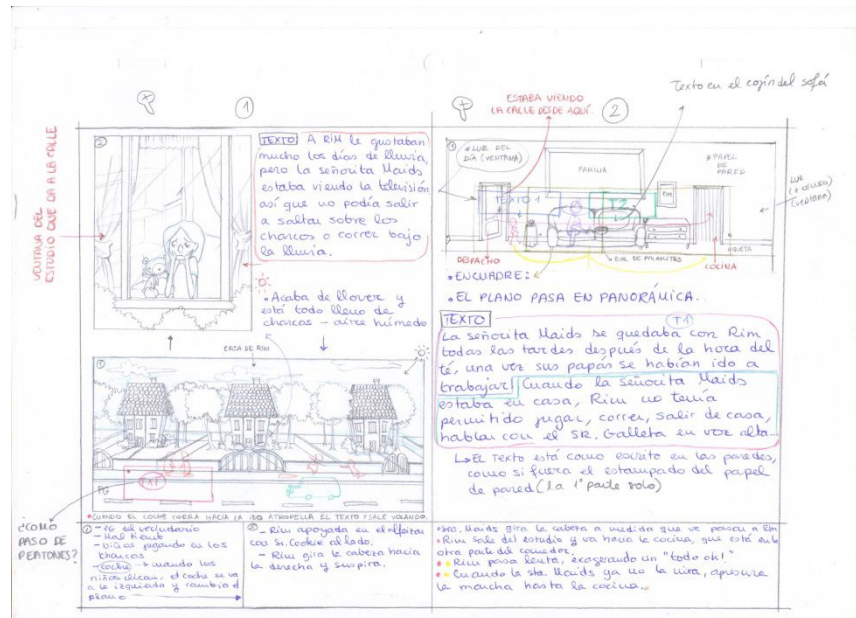 1
VENTANA DEL
ESTUDIO QUE DA A LA CALLE
2
TEXTO A RIM le gustaban
mucho los días de lluvia,
pero la señorita Maids
estaba viendo la televisión
así que no podía salir
a saltar sobre los
charcos o correr bajo
la lluvia.
• Acaba de llover y
está todo lleno de
charcos - aire húmedo
CASA DE RIM
1
TXT
PG
* CUANDO EL COCHE CORRA HACIA LA IZQ ATROPELLA EL TEXTO Y SALE VOLANDO.
¿COMO
PASO DE
PEATONES?
1 - PG del vecindario
- Mal tiempo
- Niños jugando en los
charcos
- coche → cuando los
niños clican, el coche se va
a la izquierda y cambia el
plano
2 - Rim apoyada en el alféizar
con Sr. Cookie al lado.
- Rim gira la cabeza hacia
la derecha y suspira.
2
ESTABA VIENDO
LA CALLE DESDE AQUÍ.
Texto en el cojín del sofá
1
* LUZ DEL
DÍA (VENTANA)
FAMILIA
* PAPEL
DE
PARED
LUZ
(VENTANA)
TEXTO 1
T2
DESPACHO
COCINA
• ENCUADRE:
• EL PLANO PASA EN PANORÁMICA..
TEXTO
(T1)
La señorita Maids se quedaba con Rim
todas las tardes después de la hora del
té, una vez sus papás se habían ido a
trabajar. Cuando la señorita Maids
estaba en casa, Rim no tenía
permitido jugar, correr, salir de casa,
hablar con el SR. Galleta en voz alta...
↳ EL texto está como escrito en las paredes,
como si fuera el estampado del papel
de pared (la 1ª parte solo)
• Sra. Maids gira la cabeza a medida que ve pasar a Rim
• Rim sale del estudio y va hacia la cocina, que está en la
otra parte del comedor.
• Rim pasa lenta, exagerando un "todo ok!"
• Cuando la sta Maids ya no la mira, apresura
la marcha hasta la cocina...